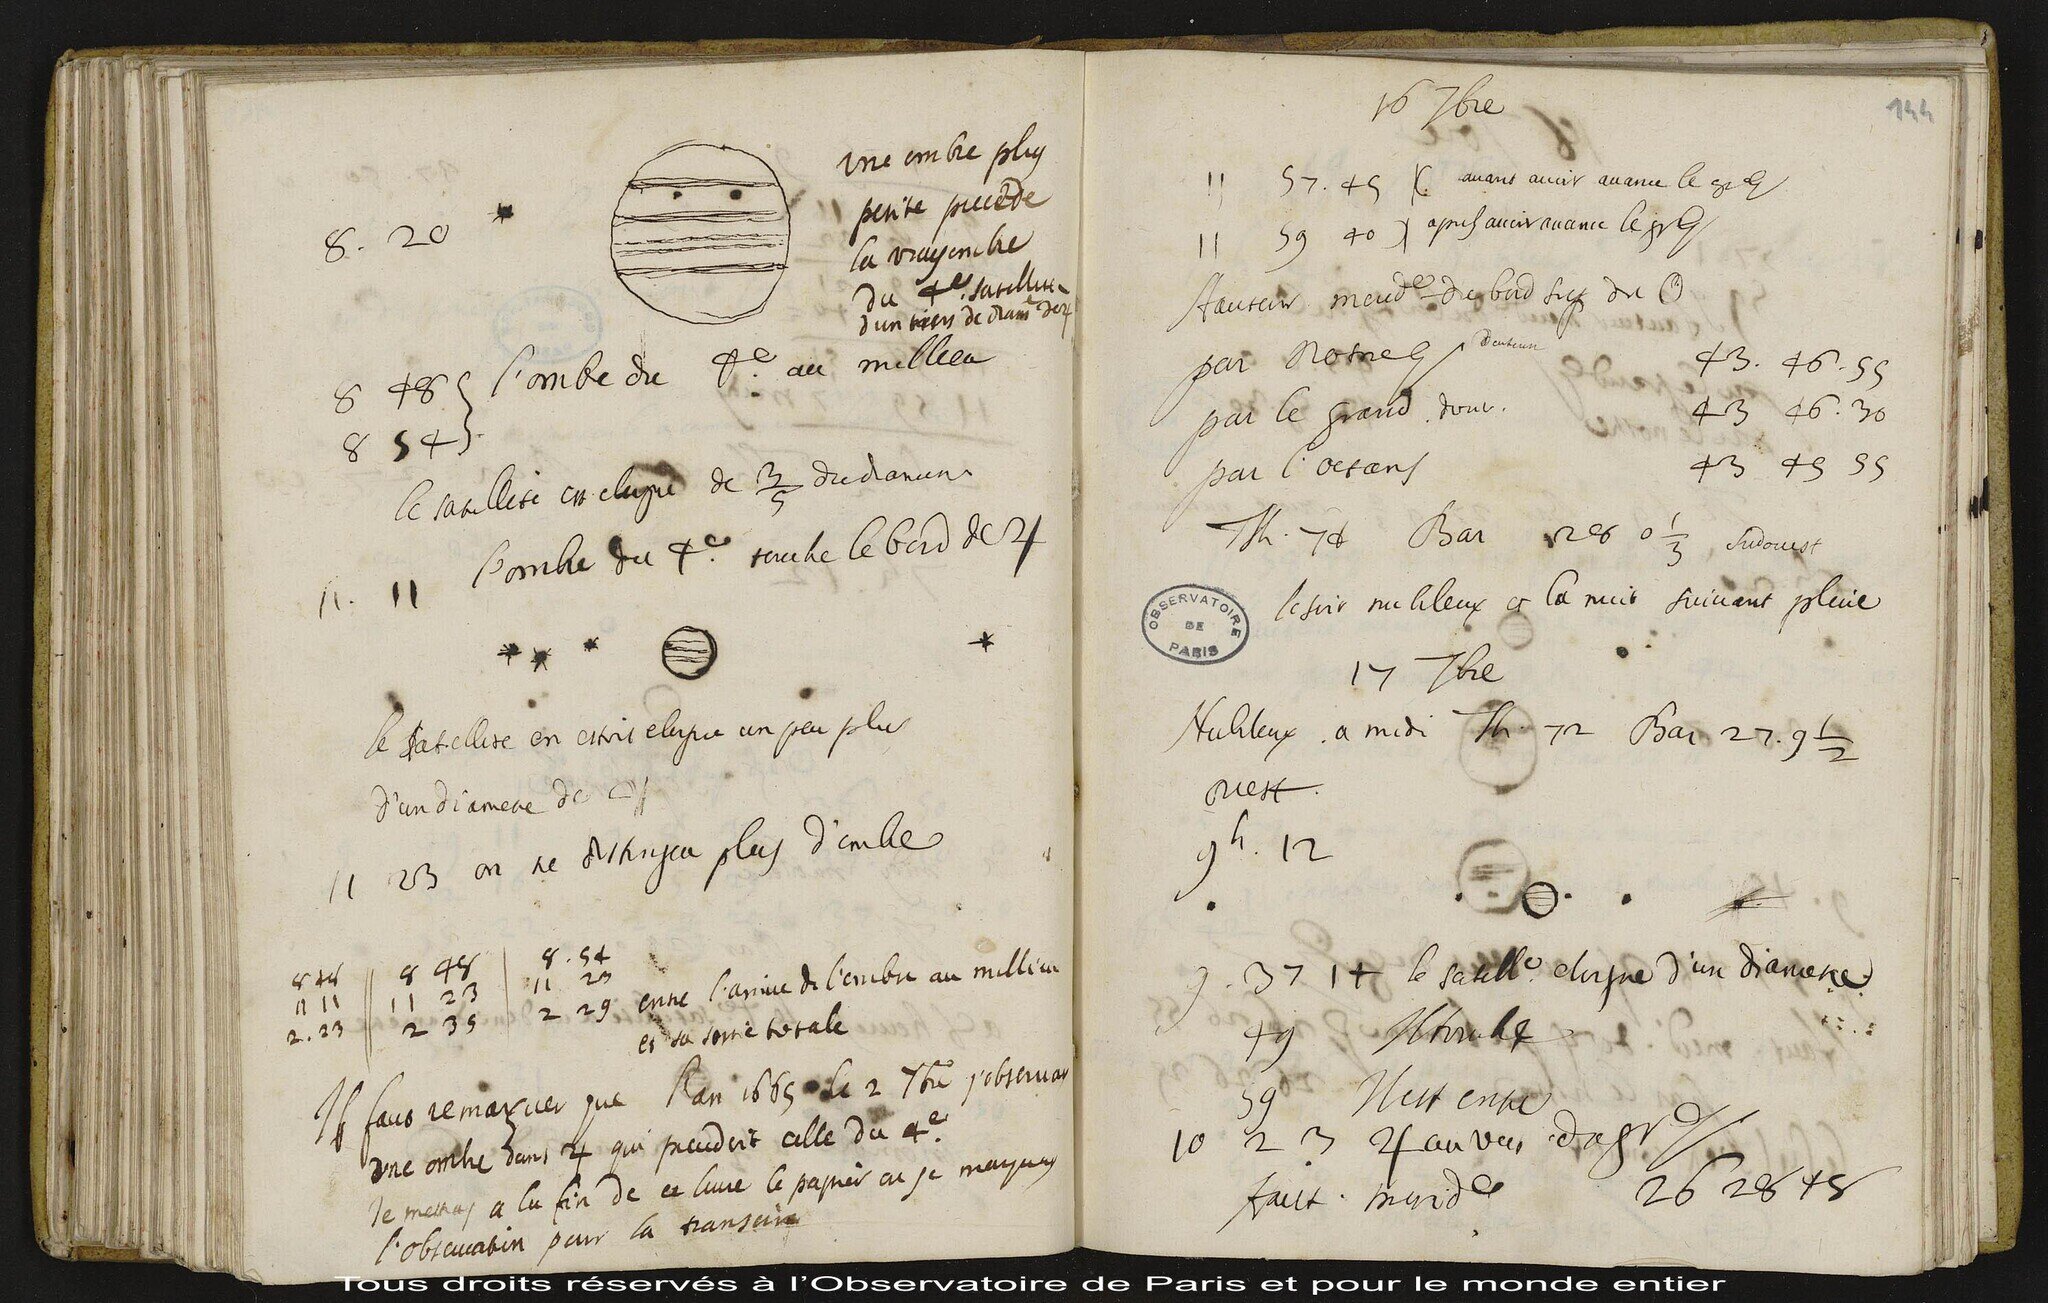 8. 20
une ombre plus
petite precede
la vray ombre
du 4e. satellite
d'un tiers de diam de ♃
8 48 l'ombre du 4e au millieu
8 54
le satellite est eloigné de 3/5 du diametre
11. 11 l'ombre du 4e. touche le bord de ♃
le satellite en estoit eloigné un peu plus
d'un diametre de ♃
11 23 on ne distingua plus d'ombre
8 48 8 48 8. 54
11 11 11 23 11 23
2. 23 2 35 2 29 entre l'arrivee de l'ombre au millieu
et sa sortie totale
Il faut remarquer que l'an 1665 le 2 7bre j'observai
une ombre dans ♃ qui precedoit celle du 4e.
Je mettray a la fin de ce livre le papier ou je marquay
l'observation pour la transcrire
144
16 7bre
11 57. 45 avant avoir avancé le
11 59 40 apres avoir avancé le
Hauteur merid.e de bord sup du ☉
par 43. 46. 55
par le grand 43 46. 30
par l'octans 43 45 55
Th. 78 Bar 28 0 1/3 sudouest
le soir nubileux et la nuit suivant pluie
OBSERVATOIRE DE PARIS
17 7bre
Nubileux a midi Th. 72 Bar 27. 9 1/2
ouest.
9h. 12
9. 37 14 le satell.e eloigné d'un diametre
49 Il touche
59 Il est entré
10 2 3 ♃ au vers
haut. merid.e 26 28 45
Tous droits réservés à l'Observatoire de Paris et pour le monde entier